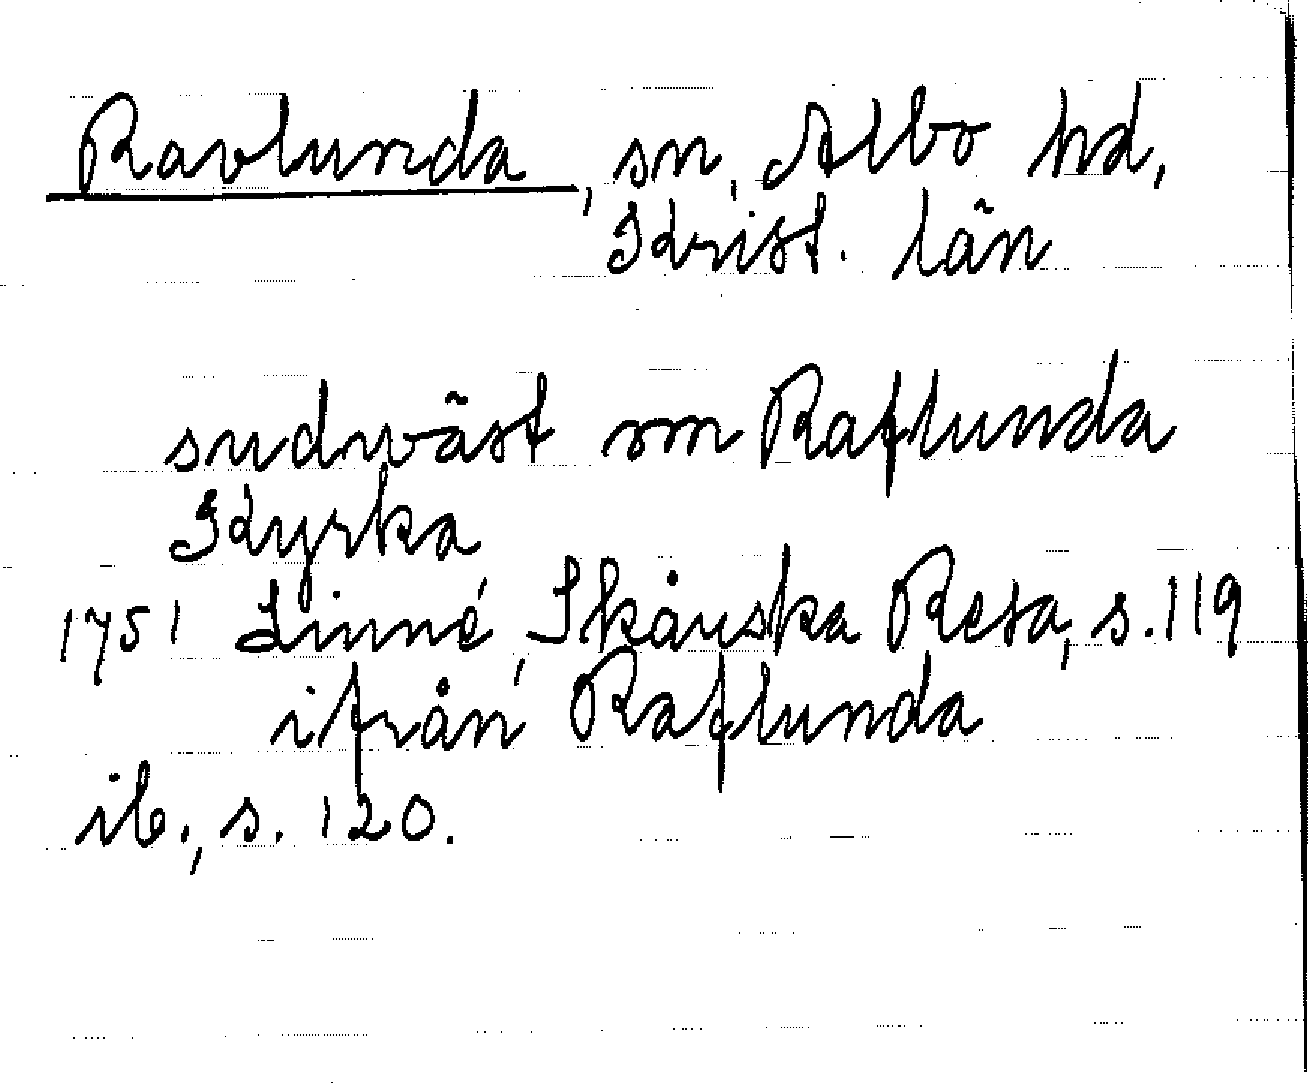 Ravlunda, sn, Albo hd,
Krist. län
sudwäst om Raflunda
Kyrka
1751 Linné, Skånska Resa, s. 119
ifrån Raflunda
ib., s. 120.